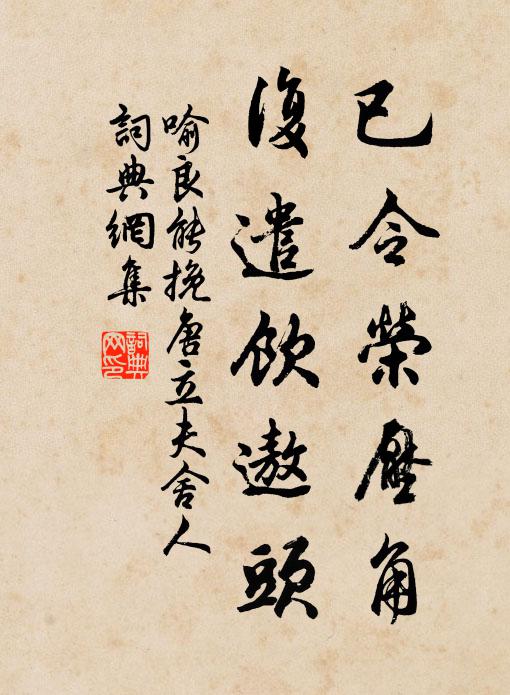 已令榮壓角
復遣飲遨頭
喻良能挽唐立夫舍人
詞典網集
詞典网印